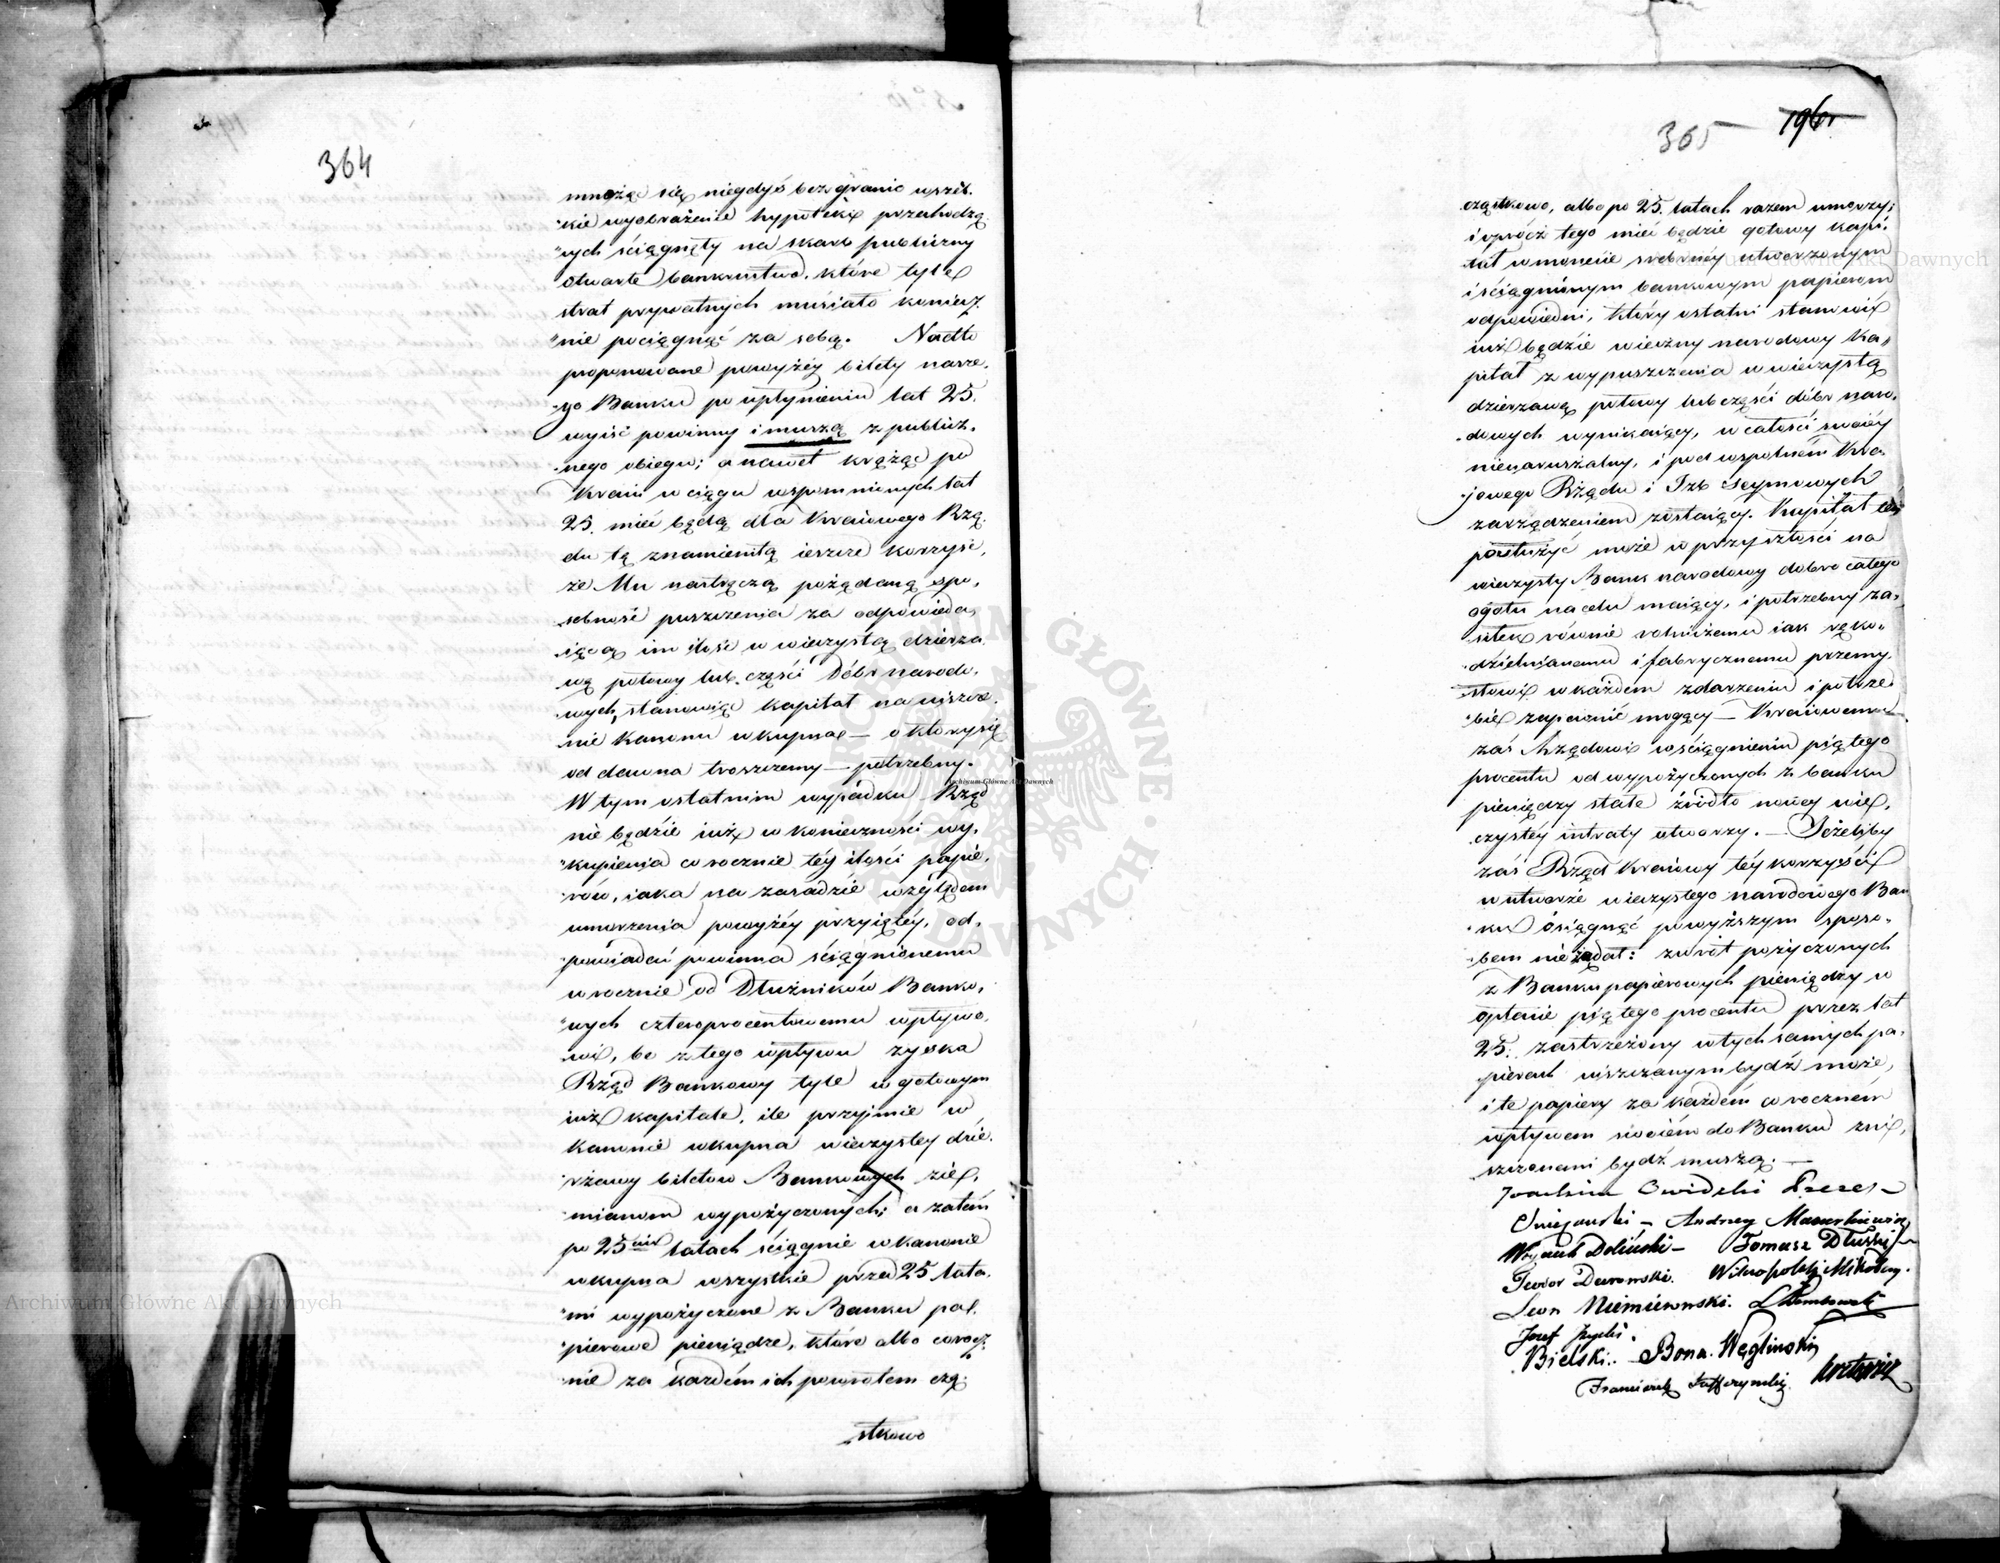 364
mnożąc się niegdyś bez granic wszel-
"kie wyobrażenie hypoteki przechodzą-
"cych ściągnęły na skarb publiczny
otwarte bankructwo, które tyle
strat prywatnych musiało koniecz-
"nie pociągnąć za sobą. Nadto
proponowane powyżéy bilety nasze-
-go Banku po upłynieniu lat 25.
wyiść powinny i muszą z publicz-
-nego obiegu; a nawet krążąc po
Kraiu w ciągu wspomnionych lat
25. mieć będą dla Kraiowego Rzą-
du tę znamienitą ieszcze korzyść,
że Mu nastręczą pożądaną spo-
sobność puszczenia za odpowieda-
iącą im ilość w wieczystą dzierza
wę połowy lub części Dóbr narodo-
wych, stanowiąc kapitał na uiszcze-
nie Kanonu wkupna — o który się
od dawna troszczemy — potrzebny.
W tym ostatnim wypadku Rząd
nie będzie iuż w konieczności wy-
"kupienia corocznie téy ilości papie-
-rów, iaka na zasadzie względem
umorzenia powyżéy przyiętéy, od-
powiadać powinna ściągnionemu
w rocznie od Dłużników Banko-
"wych czteroprocentowemu wpływo-
wi, bo z tego wpływu zyska
Rząd Bankowy tyle w gotowym
iuż kapitale, ile przyjmie w
kanonie wkupna wieczystey dzie-
rżawy biletow Bankowych zie-
mianom wypożyczonych; a zatém
po 25ciu latach ściągnie w kanonie
wkupna wszystkie przed 25 lata-
"mi wypożyczone z Banku pa-
"pierowe pieniądze, które albo corocz-
-nie za każdém ich powrotem czę-
stkowo
365 196
cząstkowo, albo po 25. latach razem umorzy;
i oprócz tego mieć będzie gotowy kapi-
tał w monecie srebrnéy utworzonym
i ściągnionym bankowym papierom
odpowiedni, który ostatni stanowić
iuż będzie wieczny narodowy Ka-
pitał z wypuszczenia w wieczystą
dzierżawę połowy lub części dóbr naro-
-dowych wynikaiący, w całości swoiéy
nienaruszalny, i pod wspólném Kra-
jowego Rządu i Izb Seymowych
zarządzeniem zostaiący. Kapitał ten
posłużyć może w przyszłości na
wieczysty Bank narodowy dobro całego
ogółu na celu maiący, i potrzebny za-
siłek równie rolniczemu iak ręko-
dzielnianemu i fabrycznemu przemy-
słowi w każdem zdarzeniu i potrze-
"bie zapewnić mogący — Kraiowemu
zaś Rządowi w ściągnieniu piątego
procentu od wypożyczonych z banku
pieniędzy stałe źródło nowéy wie-
czystéy intraty utworzy. — Jeżeliby
zaś Rząd Kraiowy téy korzyści
w utworze wieczystego narodowego Ban
ku ósiągnąć powyższym sposo-
bem nie żądał: zwrot pożyczonych
z Banku papierowych pieniędzy w
opłacie piątego procentu przez lat
25. zastrzeżony w tych samych pa-
pierach uiszczanym bydź może,
i te papiery za każdém corocznem
wpływem swoiém do Banku zni-
szczonemi bydź muszą. —
Joachim Owidzki Prezes —
Andrzey Mazurkiewicz
Woyciech Doliński — Tomasz Dłuski
Teodor Wielopolski Mikołay.
Leon Niemirowski. L Dembowski
Jozef
Bielski. Bona. Węgliński
Franciszek